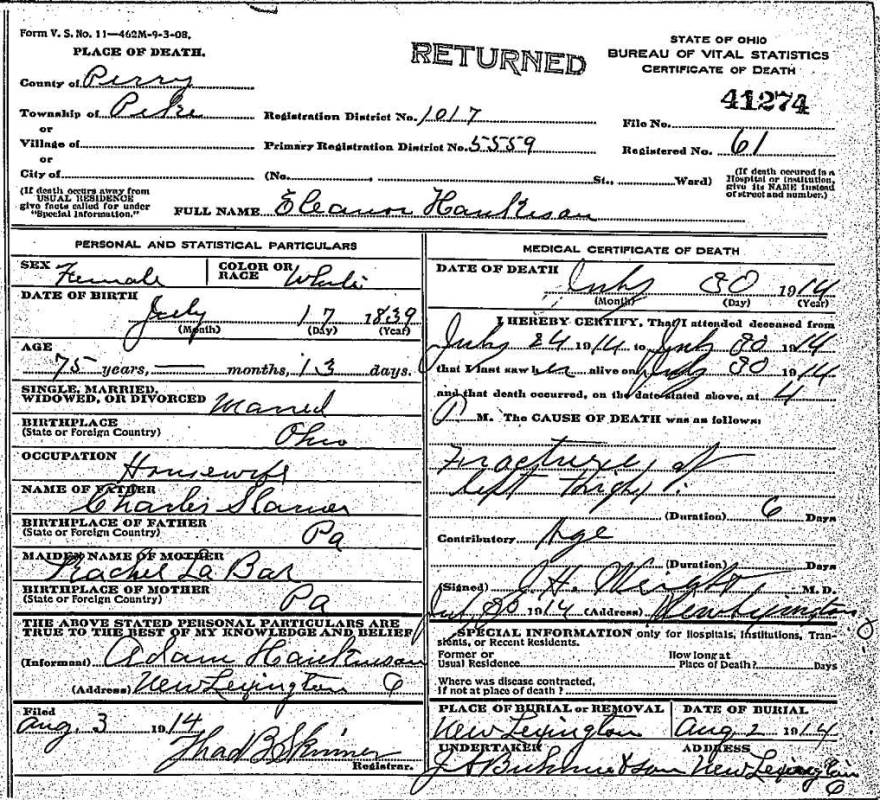 Form V. S. No. 11—462M-9-3-08.
PLACE OF DEATH.
RETURNED
STATE OF OHIO
BUREAU OF VITAL STATISTICS
CERTIFICATE OF DEATH
County of Perry
41274
Township of Pike Registration District No. 1017 File No.
or
Village of Primary Registration District No. 5559 Registered No. 61
or
City of (No. , St., Ward) (If death occured in a Hospital or Institution, give its NAME instead of street and number.)
(If death occurs away from USUAL RESIDENCE give facts called for under "Special Information.")
FULL NAME Eleanor Hankison
PERSONAL AND STATISTICAL PARTICULARS
SEX Female COLOR OR RACE White
DATE OF BIRTH
July 17 1839
(Month) (Day) (Year)
AGE
75 years, — months, 13 days.
SINGLE, MARRIED, WIDOWED, OR DIVORCED Married
BIRTHPLACE
(State or Foreign Country) Ohio
OCCUPATION
Housewife
NAME OF FATHER
Charles
BIRTHPLACE OF FATHER
(State or Foreign Country) Pa
MAIDEN NAME OF MOTHER
Rachel La Bar
BIRTHPLACE OF MOTHER
(State or Foreign Country) Pa
THE ABOVE STATED PERSONAL PARTICULARS ARE
TRUE TO THE BEST OF MY KNOWLEDGE AND BELIEF
(Informant) Adam Hankinson
(Address) New Lexington O
Filed
Aug. 3 1914
Thad B Skinner
Registrar.
MEDICAL CERTIFICATE OF DEATH
DATE OF DEATH
July 30 1914
(Month) (Day) (Year)
I HEREBY CERTIFY, That I attended deceased from
July 24 1914 to July 30 1914
that I last saw her alive on July 30 1914
and that death occurred, on the date stated above, at 4
P M. The CAUSE OF DEATH was as follows:
Fracture of
left thigh
(Duration) 6 Days
Contributory Age
(Duration) Days
(Signed) J. H. Wright M. D.
July 30 1914 (Address) New Lexington
SPECIAL INFORMATION only for Hospitals, Institutions, Transients, or Recent Residents.
Former or Usual Residence How long at Place of Death? Days
Where was disease contracted,
if not at place of death?
PLACE OF BURIAL or REMOVAL DATE OF BURIAL
New Lexington Aug 2 1914
UNDERTAKER ADDRESS
son New Lexington O